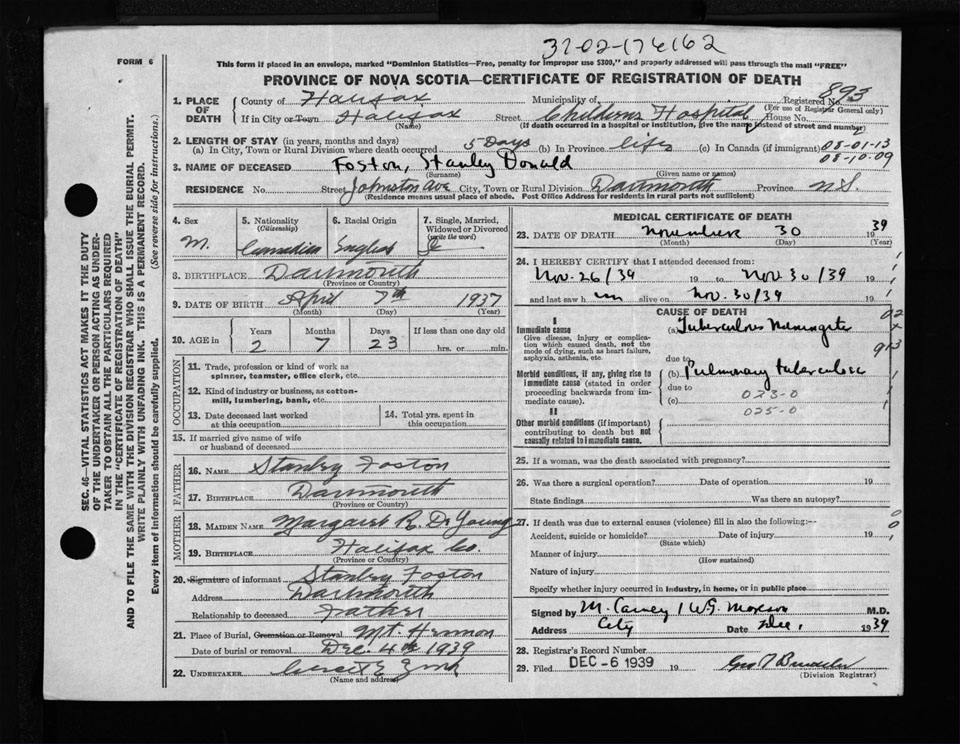 31-02-174162
FORM 6
This form if placed in an envelope, marked "Dominion Statistics—Free, penalty for improper use $300," and properly addressed will pass through the mail "FREE"
PROVINCE OF NOVA SCOTIA—CERTIFICATE OF REGISTRATION OF DEATH
1. PLACE OF DEATH
County of Halifax Municipality of Registered No. 893
(For use of Registrar General only)
If in City or Town Halifax Street Childrens Hospital House No.
(Name) (If death occurred in a hospital or institution, give the name instead of street and number)
2. LENGTH OF STAY (in years, months and days)
(a) In City, Town or Rural Division where death occurred 5 Days (b) In Province life (c) In Canada (if immigrant) 08-01-13
08-10-09
3. NAME OF DECEASED Foston, Stanley Donald
(Surname) (Given name or names)
RESIDENCE No. Street Johnston Ave City, Town or Rural Division Dartmouth Province N.S.
(Residence means usual place of abode. Post Office Address for residents in rural parts not sufficient)
4. Sex M.
5. Nationality (Citizenship) Canadian
6. Racial Origin English
7. Single, Married, Widowed or Divorced (write the word) S
8. BIRTHPLACE Dartmouth
(Province or Country)
9. DATE OF BIRTH April 7th 1937
(Month) (Day) (Year)
10. AGE in Years Months Days If less than one day old
2 7 23 hrs. or min.
OCCUPATION
11. Trade, profession or kind of work as spinner, teamster, office clerk, etc.
12. Kind of industry or business, as cotton-mill, lumbering, bank, etc.
13. Date deceased last worked at this occupation
14. Total yrs. spent in this occupation
15. If married give name of wife or husband of deceased
FATHER
16. NAME Stanley Foston
17. BIRTHPLACE Dartmouth
(Province or Country)
MOTHER
18. MAIDEN NAME Margaret R. De Young
19. BIRTHPLACE Halifax Co.
(Province or Country)
20. Signature of informant Stanley Foston
Address Dartmouth
Relationship to deceased Father
21. Place of Burial, Cremation or Removal Mt. Hermon
Date of burial or removal Dec. 4th 1939
22. UNDERTAKER
(Name and address)
MEDICAL CERTIFICATE OF DEATH
23. DATE OF DEATH November 30 39
(Month) (Day) (Year)
24. I HEREBY CERTIFY that I attended deceased from:
Nov. 26/39 19 to Nov 30/39 19
and last saw h im alive on Nov. 30/39 19
CAUSE OF DEATH
I
Immediate cause (a) Tuberculous Meningitis
Give disease, injury or complication which caused death, not the mode of dying, such as heart failure, asphyxia, asthenia, etc.
due to
Morbid conditions, if any, giving rise to immediate cause (stated in order proceeding backwards from immediate cause).
(b) Pulmonary tuberculosis
due to
(c) 023-0
025-0
II
Other morbid conditions (if important) contributing to death but not causally related to immediate cause.
25. If a woman, was the death associated with pregnancy?
26. Was there a surgical operation? Date of operation 19
State findings Was there an autopsy?
27. If death was due to external causes (violence) fill in also the following:--
Accident, suicide or homicide? Date of injury 19
(State which)
Manner of injury
(How sustained)
Nature of injury
Specify whether injury occurred in industry, in home, or in public place
Signed by M. Carney / W.G. M.D.
Address City Date Dec. 1939
28. Registrar's Record Number
29. Filed DEC -6 1939 19
(Division Registrar)
SEC. 46—VITAL STATISTICS ACT MAKES IT THE DUTY
OF THE UNDERTAKER OR PERSON ACTING AS UNDERTAKER
TO OBTAIN ALL THE PARTICULARS REQUIRED
IN THE "CERTIFICATE OF REGISTRATION OF DEATH"
AND TO FILE THE SAME WITH THE DIVISION REGISTRAR WHO SHALL ISSUE THE BURIAL PERMIT.
WRITE PLAINLY WITH UNFADING INK. THIS IS A PERMANENT RECORD.
Every item of information should be carefully supplied. (See reverse side for instructions.)